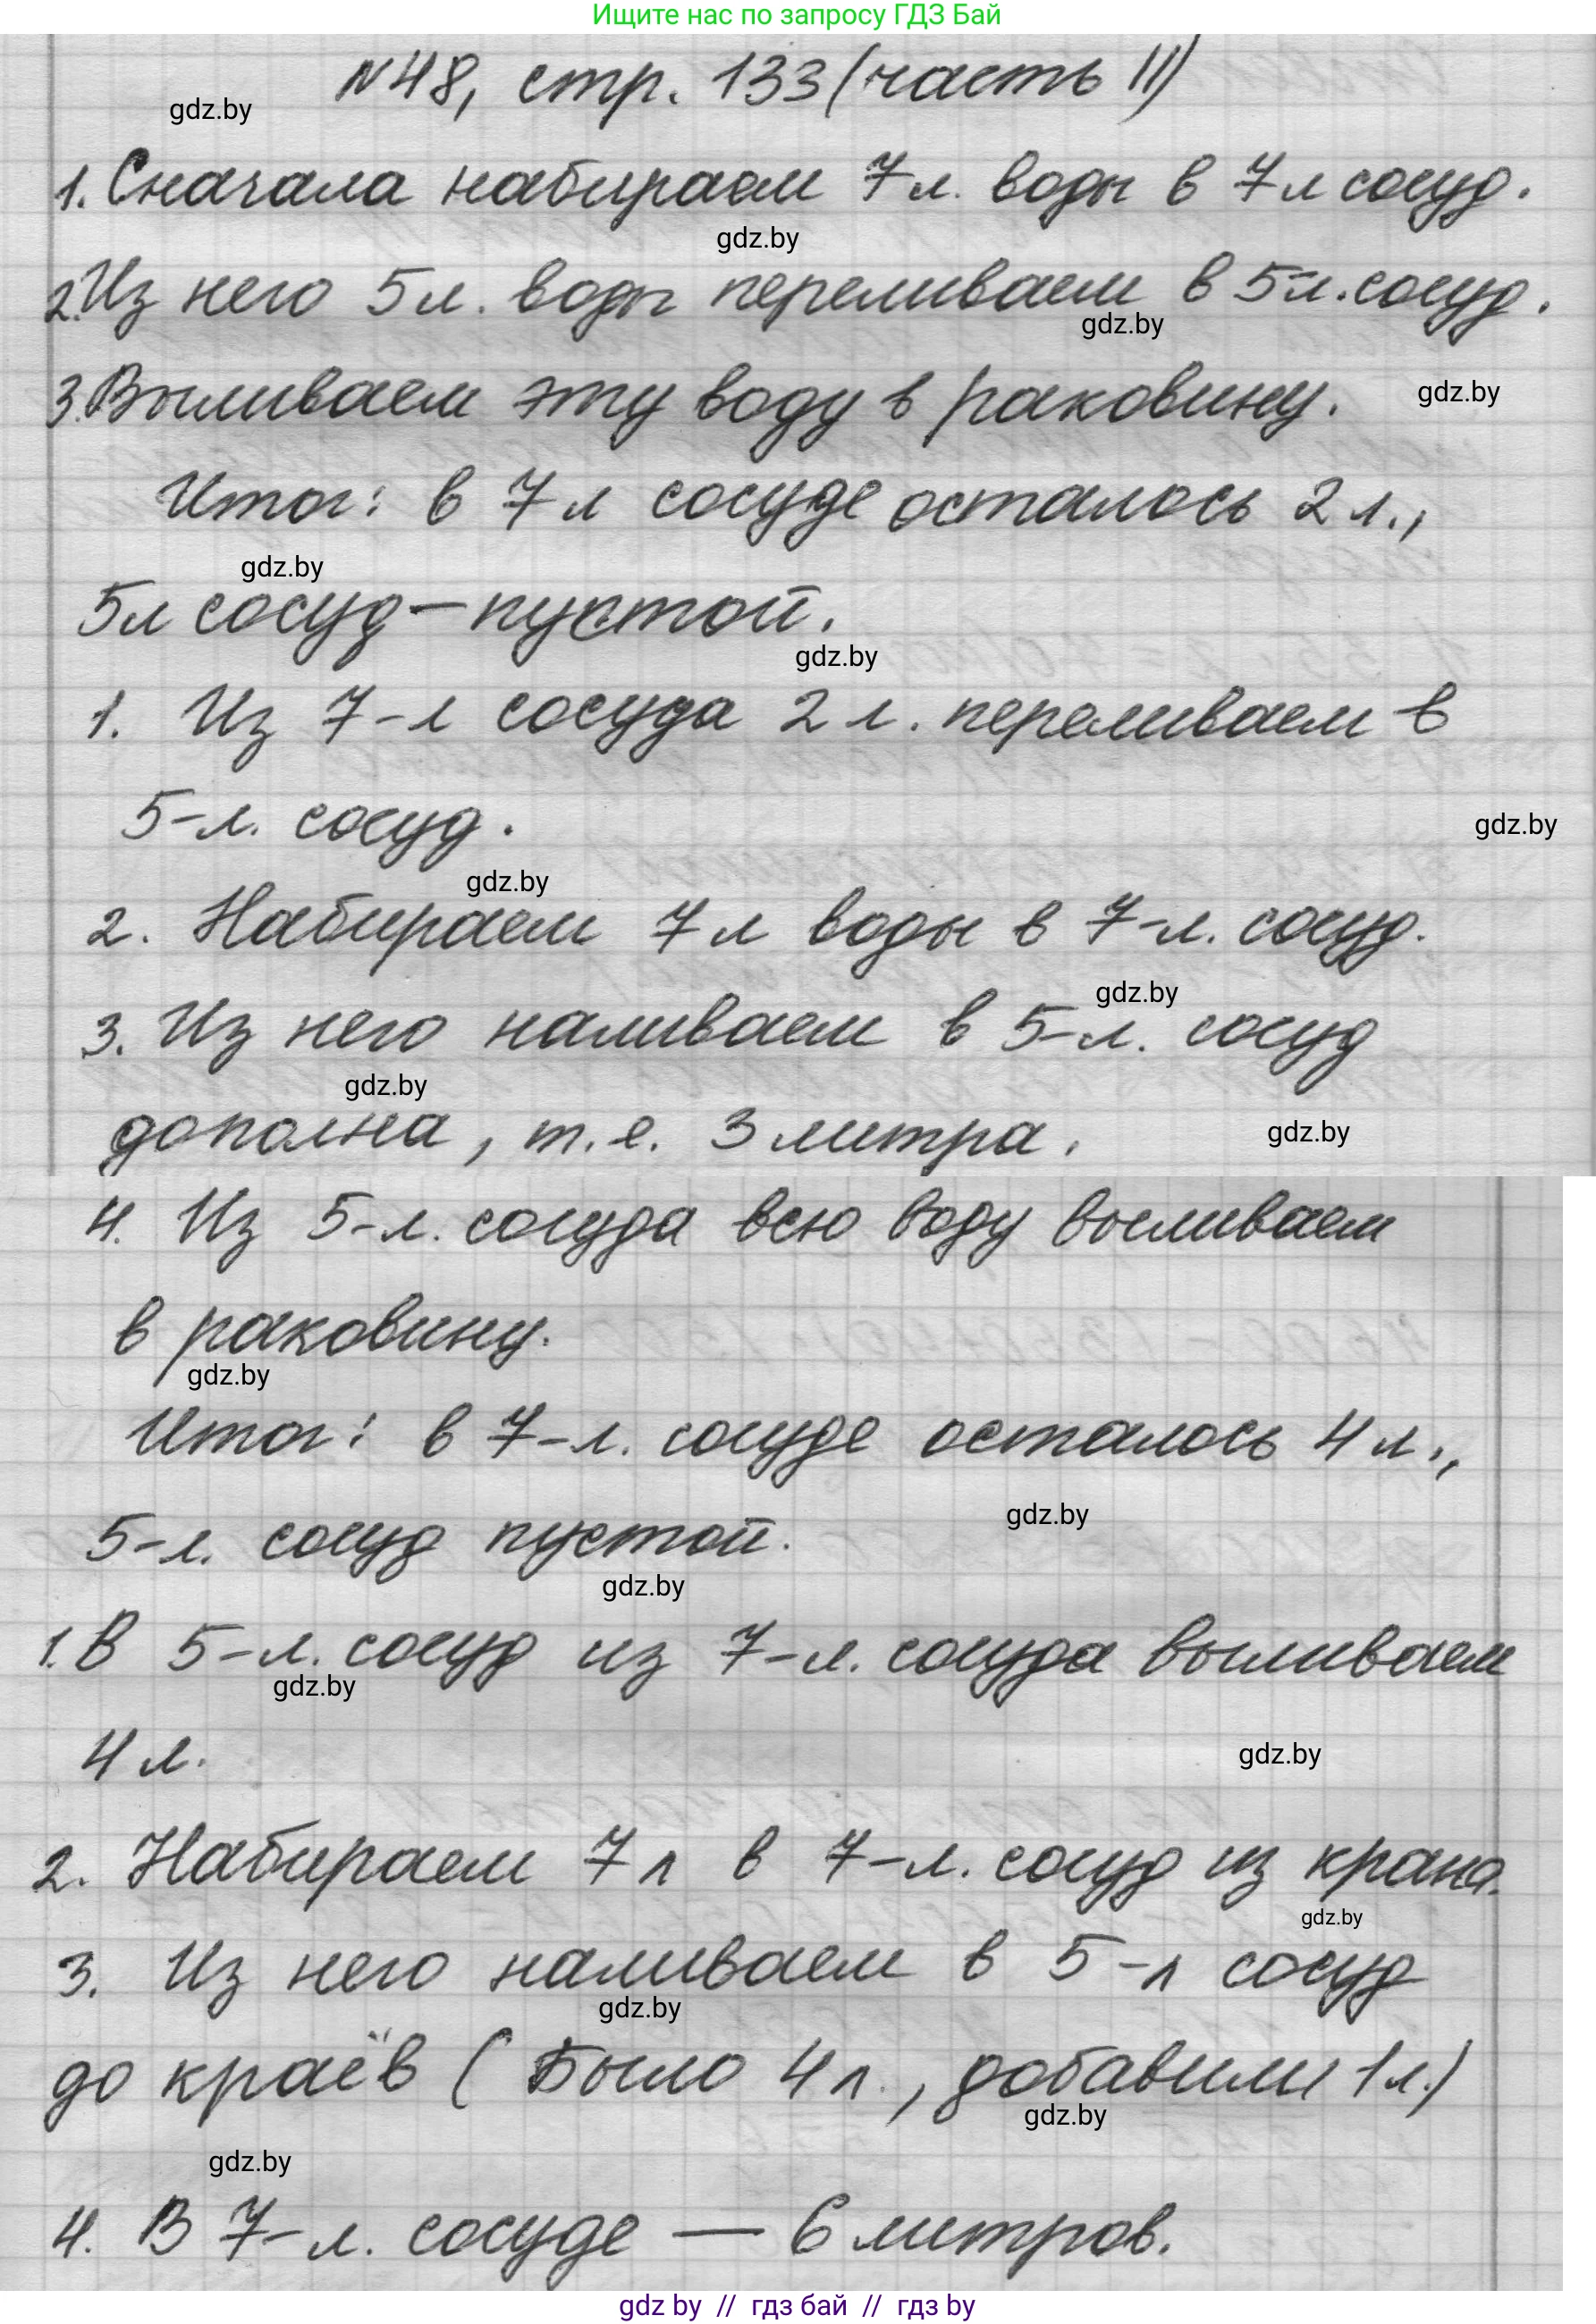 Ищите нас по запросу ГДЗ Бай
№48, стр. 133 (часть II)
gdz.by
1. Сначала набираем 7 л. воды в 7 л сосуд.
gdz.by
2. Из него 5 л. воды переливаем в 5-л. сосуд.
gdz.by
3. Выливаем эту воду в раковину.
gdz.by
Итог: в 7 л сосуде осталось 2 л.,
gdz.by
5 л сосуд – пустой.
gdz.by
1. Из 7-л сосуда 2 л. переливаем в
5-л. сосуд.
gdz.by
gdz.by
2. Набираем 7 л воды в 7-л. сосуд.
gdz.by
3. Из него наливаем в 5-л. сосуд
gdz.by
дополна, т.е. 3 литра.
gdz.by
4. Из 5-л. сосуда всю воду выливаем
в раковину.
gdz.by
Итог: в 7-л. сосуде осталось 4 л.,
gdz.by
5-л. сосуд пустой.
gdz.by
1. В 5-л. сосуд из 7-л. сосуда выливаем
gdz.by
4 л.
gdz.by
2. Набираем 7 л в 7-л. сосуд из крана.
gdz.by
3. Из него наливаем в 5-л сосуд
gdz.by
до краёв (Было 4 л., добавили 1 л.)
gdz.by
gdz.by
4. В 7-л. сосуде — 6 литров.
gdz by // гдз бай // гдз by